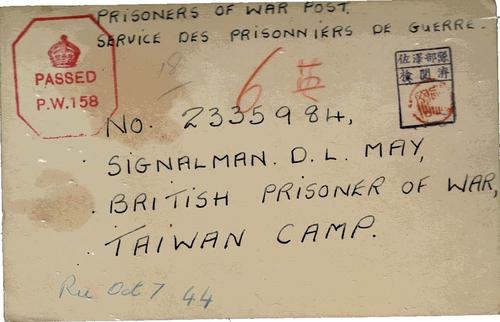 PRISONERS OF WAR POST.
SERVICE DES PRISONNIERS DE GUERRE.
PASSED
P.W.158
18
6 英
檢閲濟
NO. 2335984,
SIGNALMAN. D. L. MAY,
BRITISH PRISONER OF WAR,
TAIWAN CAMP.
Rec Oct 7 44